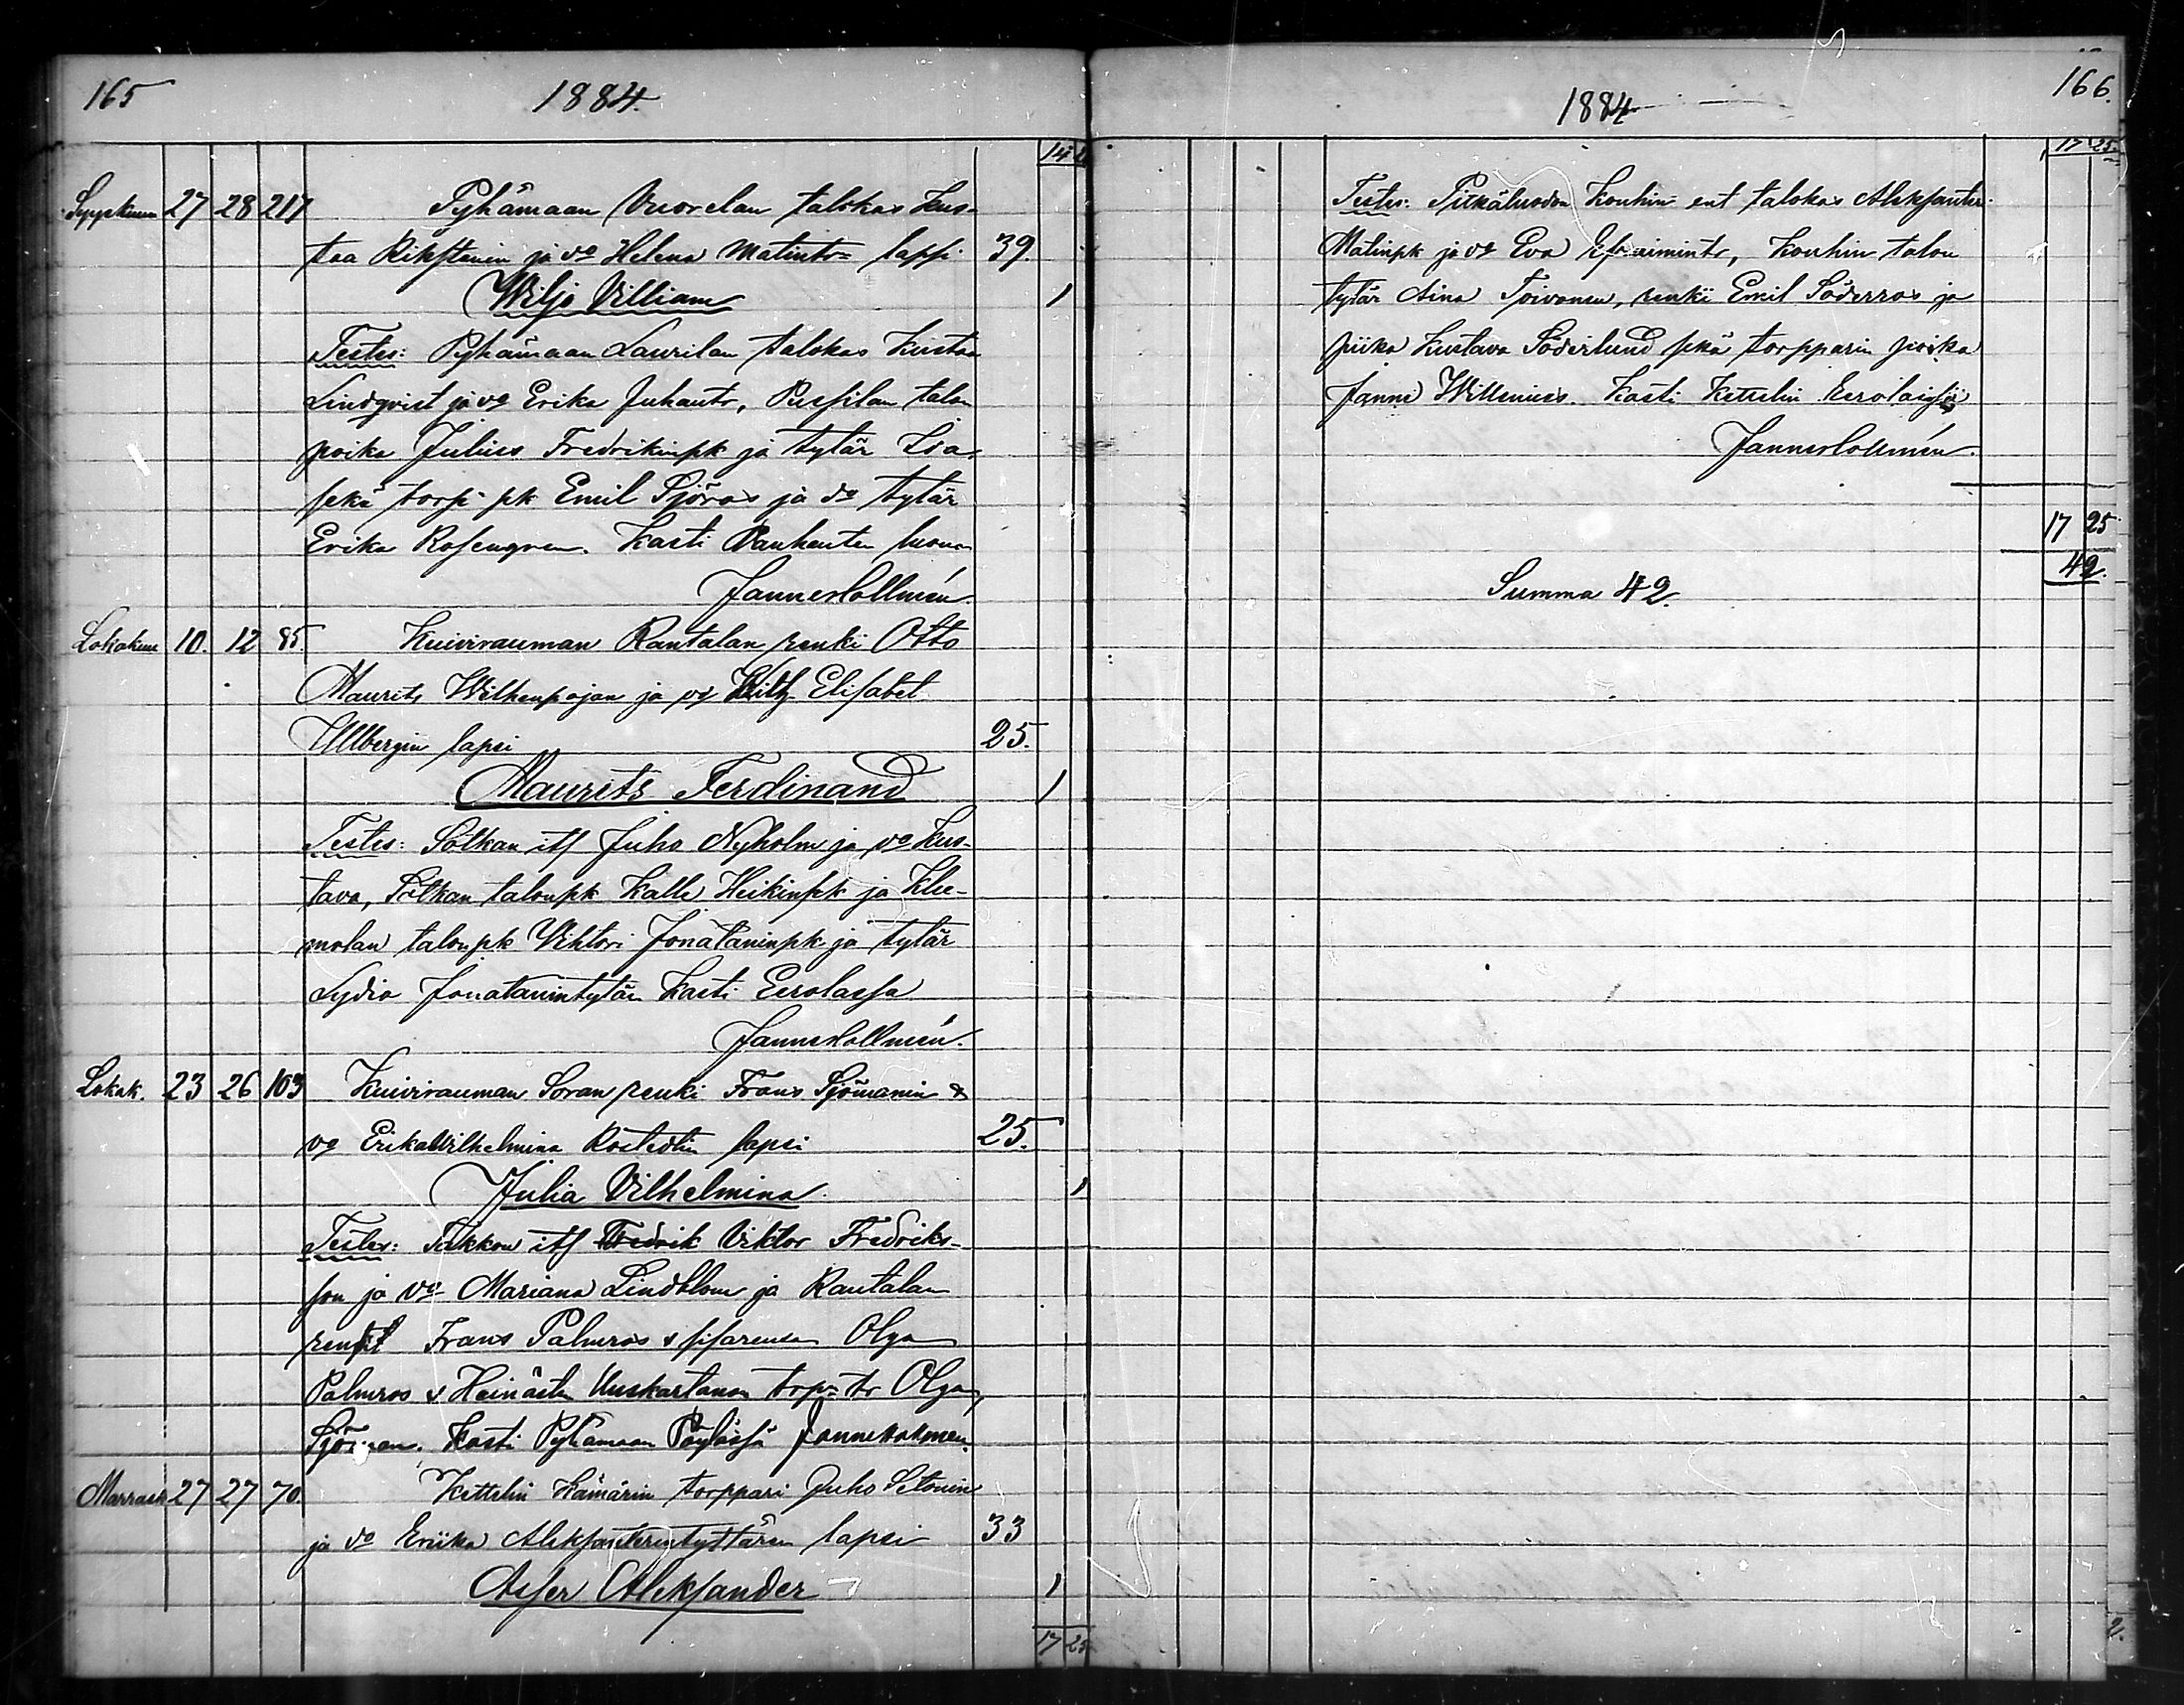 165
1884.
14
Syyskuun 27 28 217 Pyhämaan Vuorelan talokas Kus-
taa Rikstenin ja vo Helena Matintr lapsi 39.
Wiljo Villiam 1
Testes: Pyhämaan Laurilan talokas Kustaa
Lindqvist ja vo Erika Juhantr, talon
poika Julius Fredrikinpk ja tytär Ida
sekä torp pk Emil Sjöros ja do tytär
Erika Rosengren. Kasti Vanhenten luona
Janne Hollmén.
Lokakuu 10. 12 85. Kuivirauman Rantalan renki Otto
Maurits Wilhenpojan ja vo Elisabet
Ullbergin lapsi 25.
Maurits Ferdinand 1
Testes: Silkan itf Juho Nyholm ja vo Kus-
tava, Silkan talonpk Kalle Heikinpk ja Klee-
molan talonpk Vihtori Jonataninpk ja tytär
Lydia Jonatanintytär Kasti Eerolassa
Janne Hollmén.
Lokak. 23 26 103 Kuivirauman Soran renki Frans Sjömanin &
vo Erika Wilhelmina Rostedtin lapsi 25.
Julia Vilhelmina. 1
Testes: Takkon itf Fredrik Viktor Fredriks-
son ja vo Mariana Lindblom ja Rantalan
Frans Palmros & sisarensa Olga
Palmros & Heinästen Uuskartanon torp tr Olga
Sjöman. Kasti Pyhämaan Pöylässä Janne Hollmén.
Marrask 27 27 70. Kettelin Hämärin torppari Juho Setonin
ja vo Eriika Aleksanterintyttären lapsi 33
Asser Aleksander 1
17 25
166.
1884
17 25.
Testes: Pitkäluodon Kouhin ent talokas Aleksanter
Matinpk ja vo Eva Efraimintr, Kouhin talon
tytär Aina Toivonen, renki Emil Söderros ja
piika Kustava Söderlund sekä torpparin poika
Janne Willenius. Kasti Kettelin Eerolaissa
Janne Hollmén.
17 25
42.
Summa 42.